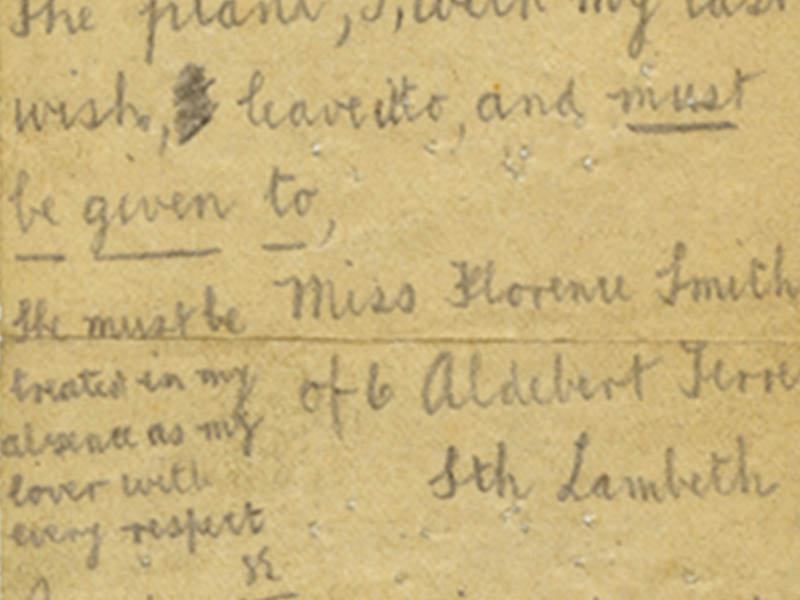 The plant, I, with my last
wish, leave it to, and must
be given to,
Miss Florence Smith
of 6 Aldebert Terre
Sth Lambeth
She must be
treated in my
absence as my
lover with
every respect